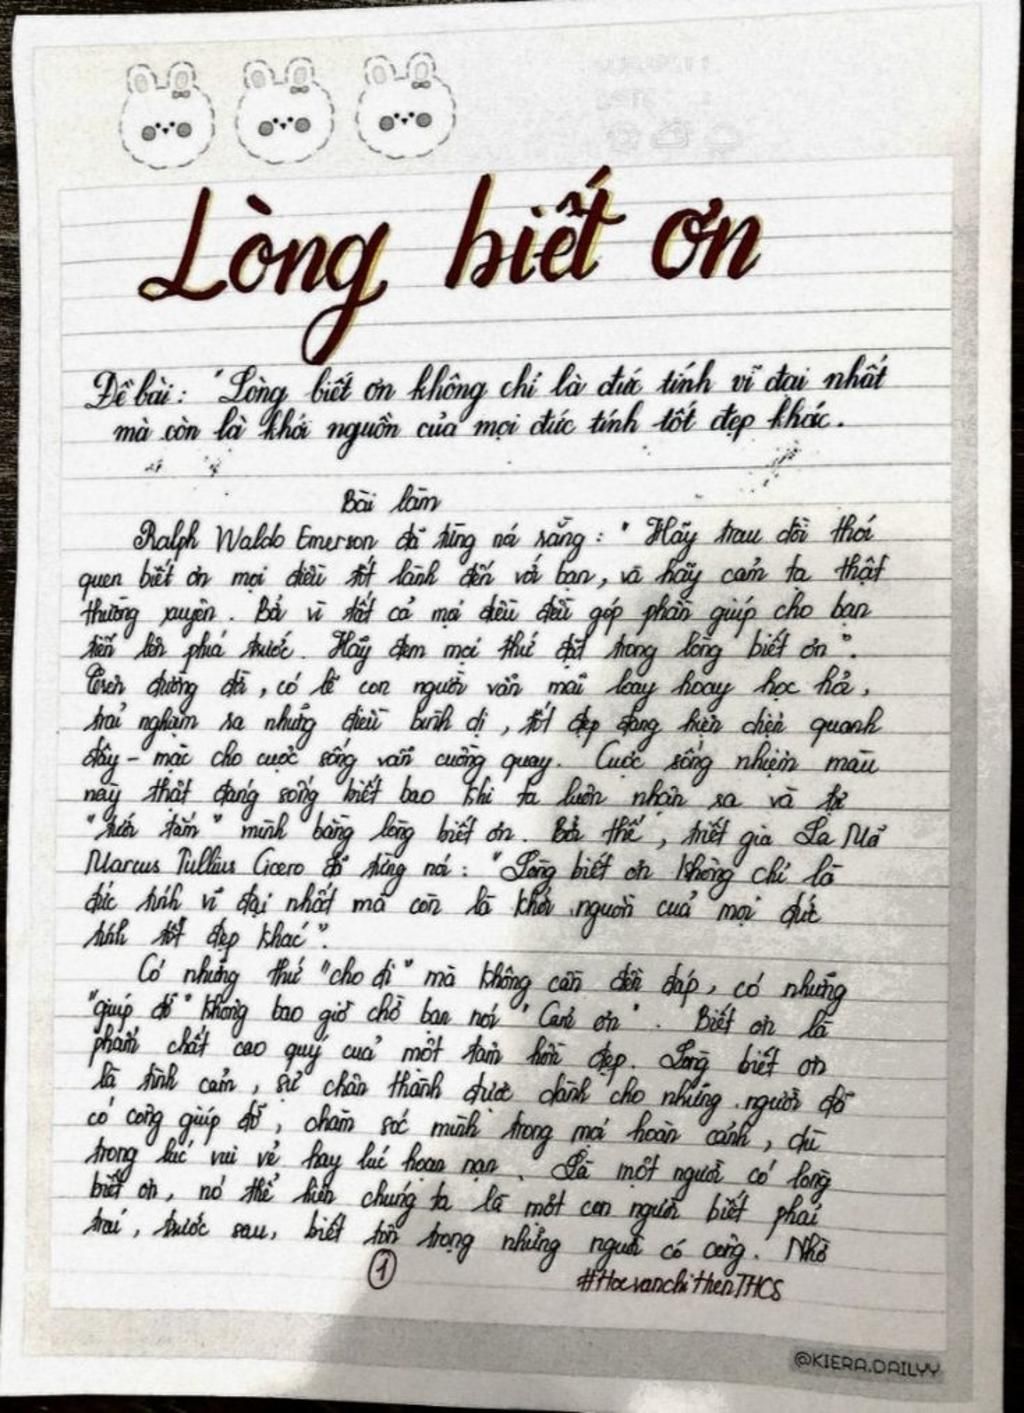 Lòng biết ơn
Đề bài: "Lòng biết ơn không chỉ là đức tính vĩ đại nhất
mà còn là khởi nguồn của mọi đức tính tốt đẹp khác.
Bài làm
Ralph Waldo Emerson đã từng nói rằng: "Hãy trau dồi thói
quen biết ơn mọi điều tốt lành đến với bạn, và hãy cảm tạ thật
thường xuyên. Bởi vì tất cả mọi điều đều góp phần giúp cho bạn
tiến lên phía trước. Hãy đem mọi thứ đặt trong lòng biết ơn".
đường đời, có lẽ con người vẫn mãi loay hoay học hỏi,
trải nghiệm ra những điều bình dị, tốt đẹp đang hiện diện quanh
đây - mặc cho cuộc sống vẫn cuồng quay. Cuộc sống nhiệm màu
này thật đáng sống biết bao khi ta luôn nhận ra và tự
"tưới tắm" mình bằng lòng biết ơn. Bởi thế, triết gia La Mã
Marcus Tullius Cicero đã từng nói: "Lòng biết ơn không chỉ là
đức tính vĩ đại nhất mà còn là khởi nguồn của mọi đức
tính tốt đẹp khác".
Có những thứ "cho đi" mà không cần đền đáp, có những
"giúp đỡ" không bao giờ chờ bạn nói "Cảm ơn". Biết ơn là
phẩm chất cao quý của một tâm hồn đẹp. Lòng biết ơn
là tình cảm, sự chân thành được dành cho những người đã
có công giúp đỡ, chăm sóc mình trong mọi hoàn cảnh, dù
trong lúc vui vẻ hay lúc hoạn nạn. Là một người có lòng
biết ơn, nó thể hiện chúng ta là một con người biết phải
trái, trước sau, biết tôn trọng những người có công. Nhờ
1
#HocvanchiHienTHCS
@KIERA.DAILYY